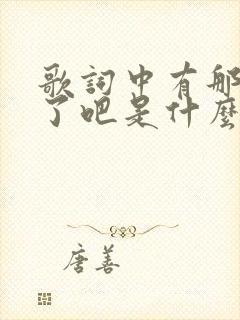 歌詞中有那
了吧是什麼
唐善